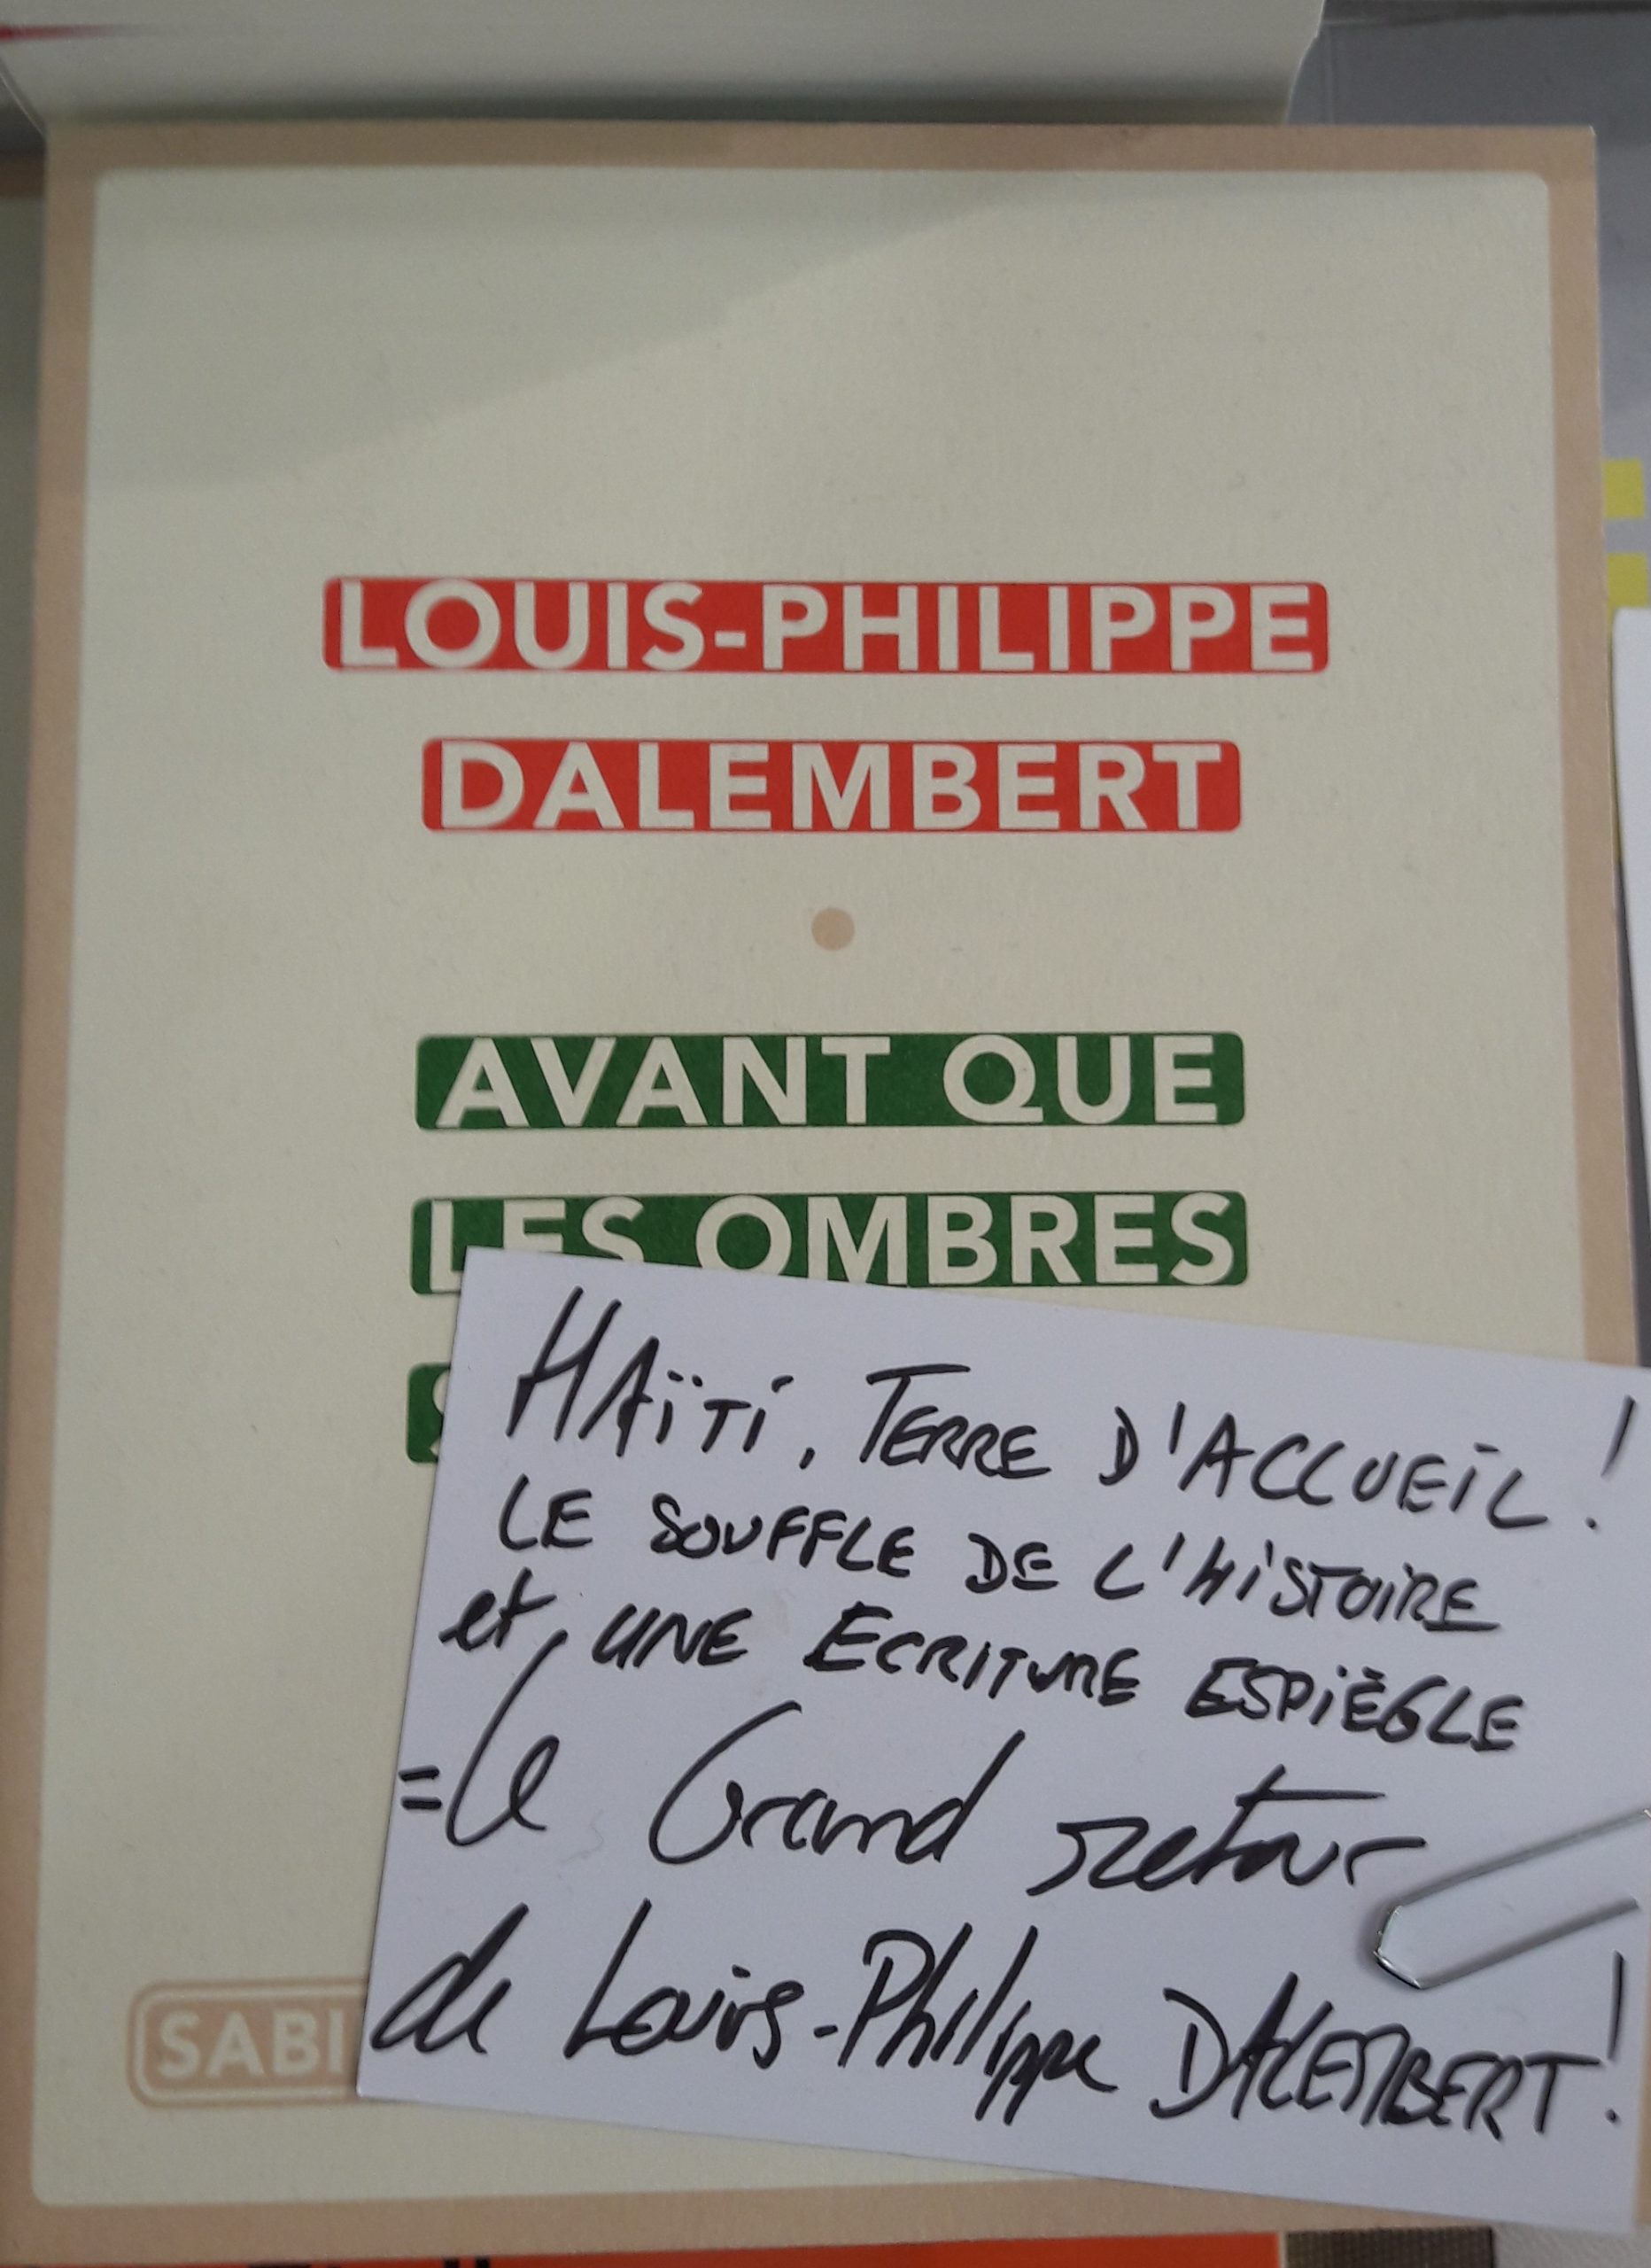 LOUIS-PHILIPPE
DALEMBERT
AVANT QUE
LES OMBRES
HAÏTI, TERRE D'ACCUEIL !
LE SOUFFLE DE L'HISTOIRE
et UNE ECRITURE ESPIÈGLE
= Le Grand retour
de Louis-Philippe DALEMBERT !
SABI